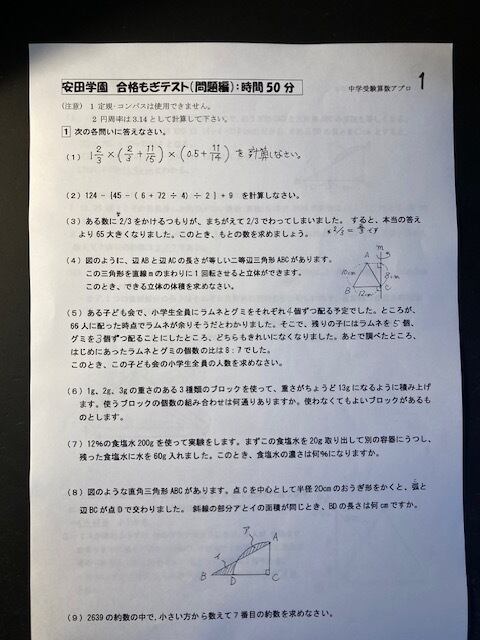 安田学園 合格もぎテスト(問題編):時間50分
中学受験算数アプロ 1
(注意) 1 定規・コンパスは使用できません。
2 円周率は3.14として計算して下さい。
1 次の各問いに答えなさい。
(1) 1 2/3 × (2/3 + 11/15) × (0.5 + 11/14) を計算しなさい。
(2) 124 − {45 − ( 6 + 72 ÷ 4) ÷ 2 } + 9 を計算しなさい。
(3) ある数に 2/3 をかけるつもりが、まちがえて 2/3 でわってしまいました。 すると、本当の答え
より 65 大きくなりました。このとき、もとの数を求めましょう。
(4) 図のように、辺ABと辺ACの長さが等しい二等辺三角形ABCがあります。
この三角形を直線mのまわりに1回転させると立体ができます。
このとき、できる立体の体積を求めなさい。
m
A
10cm
8cm
B
C
12cm
(5) ある子ども会で、小学生全員にラムネとグミをそれぞれ4個ずつ配る予定でした。ところが、
66人に配った時点でラムネが余りそうだとわかりました。そこで、残りの子にはラムネを5個、
グミを3個ずつ配ることにしたところ、どちらもきれいになくなりました。あとで調べたところ、
はじめにあったラムネとグミの個数の比は8:7でした。
このとき、この子ども会の小学生全員の人数を求めなさい。
(6) 1g、2g、3gの重さのある3種類のブロックを使って、重さがちょうど13gになるように積み上げ
ます。使うブロックの個数の組み合わせは何通りありますか。使わなくてもよいブロックがあるも
のとします。
(7) 12%の食塩水200gを使って実験をします。まずこの食塩水を20g取り出して別の容器にうつし、
残った食塩水に水を60g入れました。このとき、食塩水の濃さは何%になりますか。
(8) 図のような直角三角形ABCがあります。点Cを中心として半径20cmのおうぎ形をかくと、弧と
辺BCが点Dで交わりました。 斜線の部分アとイの面積が同じとき、BDの長さは何cmですか。
ア
A
イ
B
D
C
(9) 2639の約数の中で、小さい方から数えて7番目の約数を求めなさい。